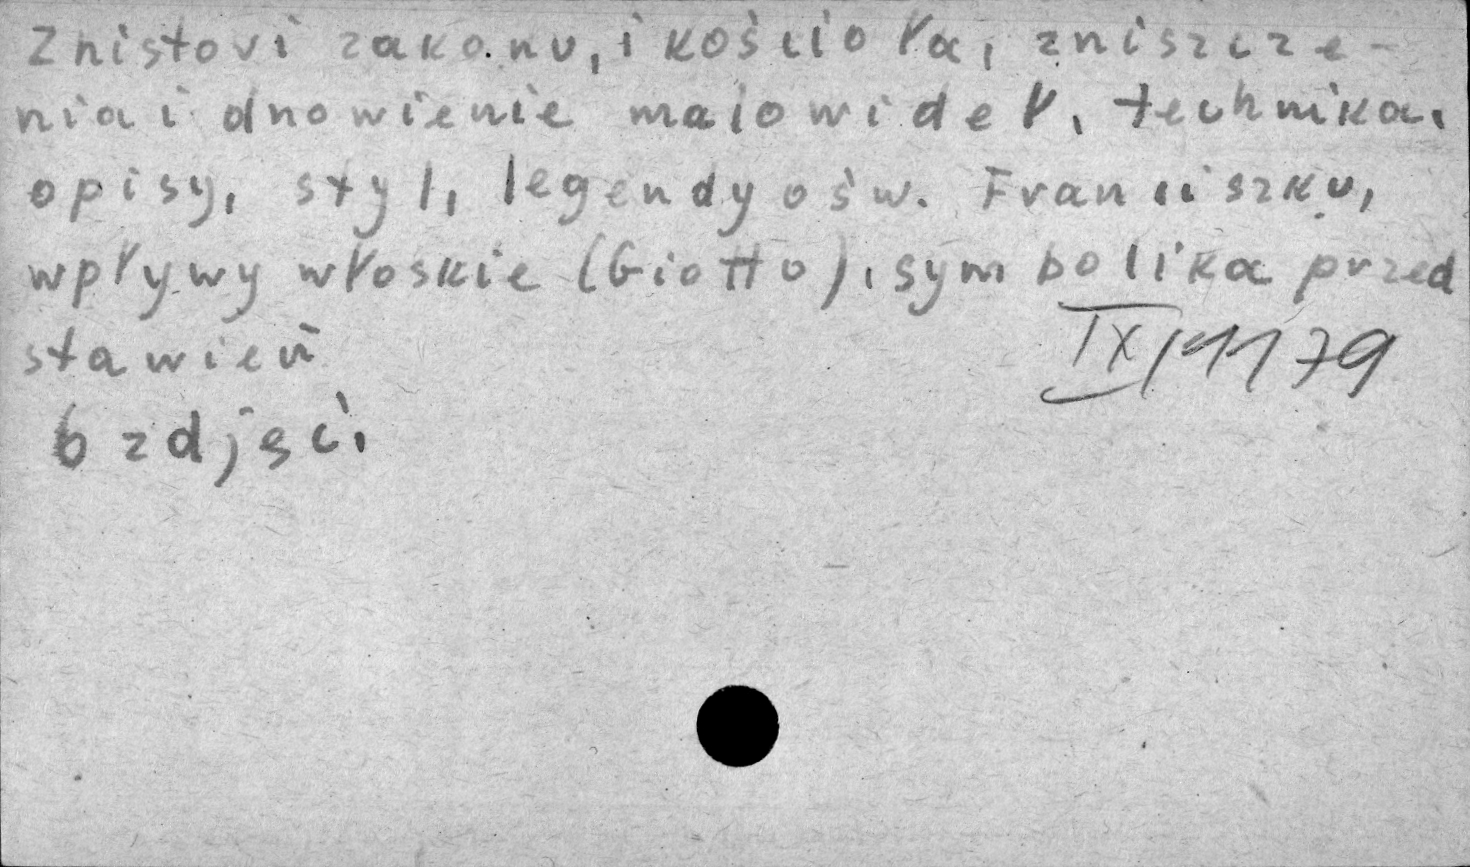 Z histori zakonu, i kościoła, zniszcze-
nia i dnowienie malowideł, technika,
opisy, styl, legendy o św. Franciszku,
wpływy włoskie (Giotto), symbolika przed
stawień
IX/1179
6 zdjęć.